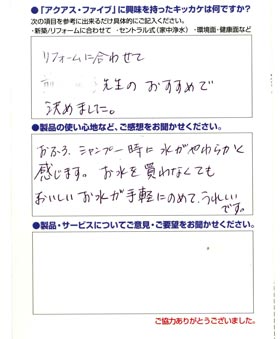 ●「アクアス・ファイブ」に興味を持ったキッカケは何ですか?
次の項目を参考に出来るだけ具体的にご記入ください。
・新築/リフォームに合わせて ・セントラル式(家中浄水) ・環境面・健康面など
リフォームに合わせて
先生の おすすめで
決めました。
●製品の使い心地など、ご感想をお聞かせください。
おふろ、シャンプー時に 水がやわらかく
感じます。 お水を買わなくても
おいしい お水が手軽にのめて、うれしい
です。
●製品・サービスについてご意見・ご要望をお聞かせください。
ご協力ありがとうございました。